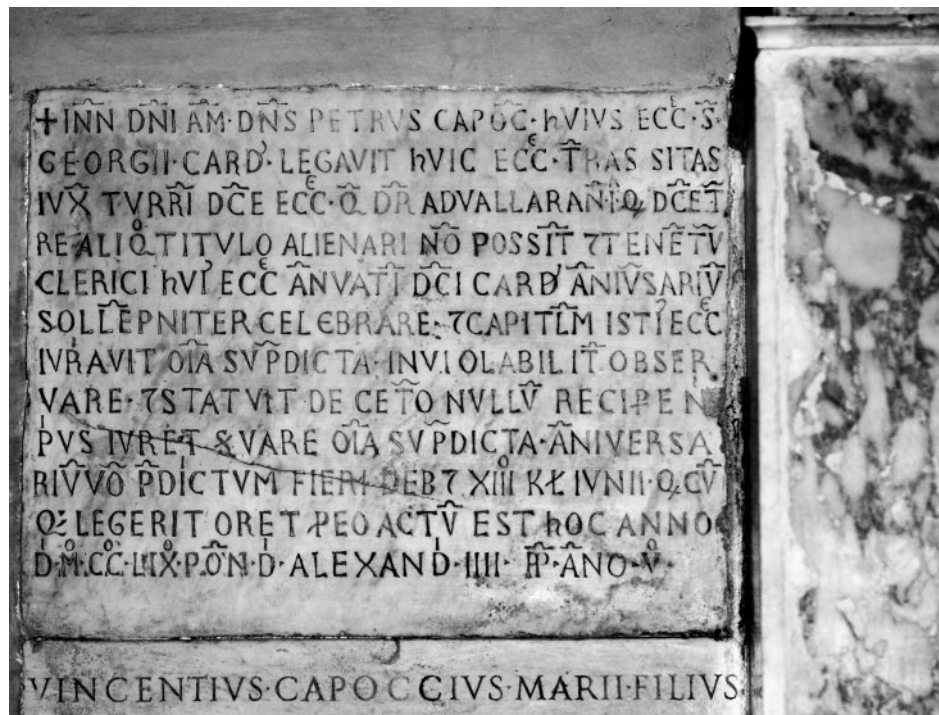 + INN DNI AM·DNS PETRVS CAPOCC·hVIVS ECC·S·
GEORGII·CARD' LEGAVIT hVIC ECCE·TRAS SITAS
IVX TVRRI DCE ECCE·Q DR ADVALLARANI·Q DCE T
RE ALIQO TITVLO ALIENARI NO POSSIT 7 TENETV
CLERICI hVI' ECCE ANVATI DCI CARD' ANIVSARIV
SOLLEPNITER CELEBRARE·7 CAPITLM ISTI' ECCE
IVRAVIT OIA SVPDICTA·INVIOLABILIT OBSER
VARE·7 STATVIT DE CETO NVLLV RECIPE N
PVS IVRET &VARE OIA SVPDICTA·ANIVERSA
RIV VO PDICTVM FIERI DEB7 XIII KŁ IVNII·Q CV
Q LEGERIT ORET PEO ACTV EST hOC ANNO
D·M·CC·LIX·PON·D·ALEXAND·IIII·PP·ANO·V·
VINCENTIVS·CAPOCCIVS·MARII·FILIVS